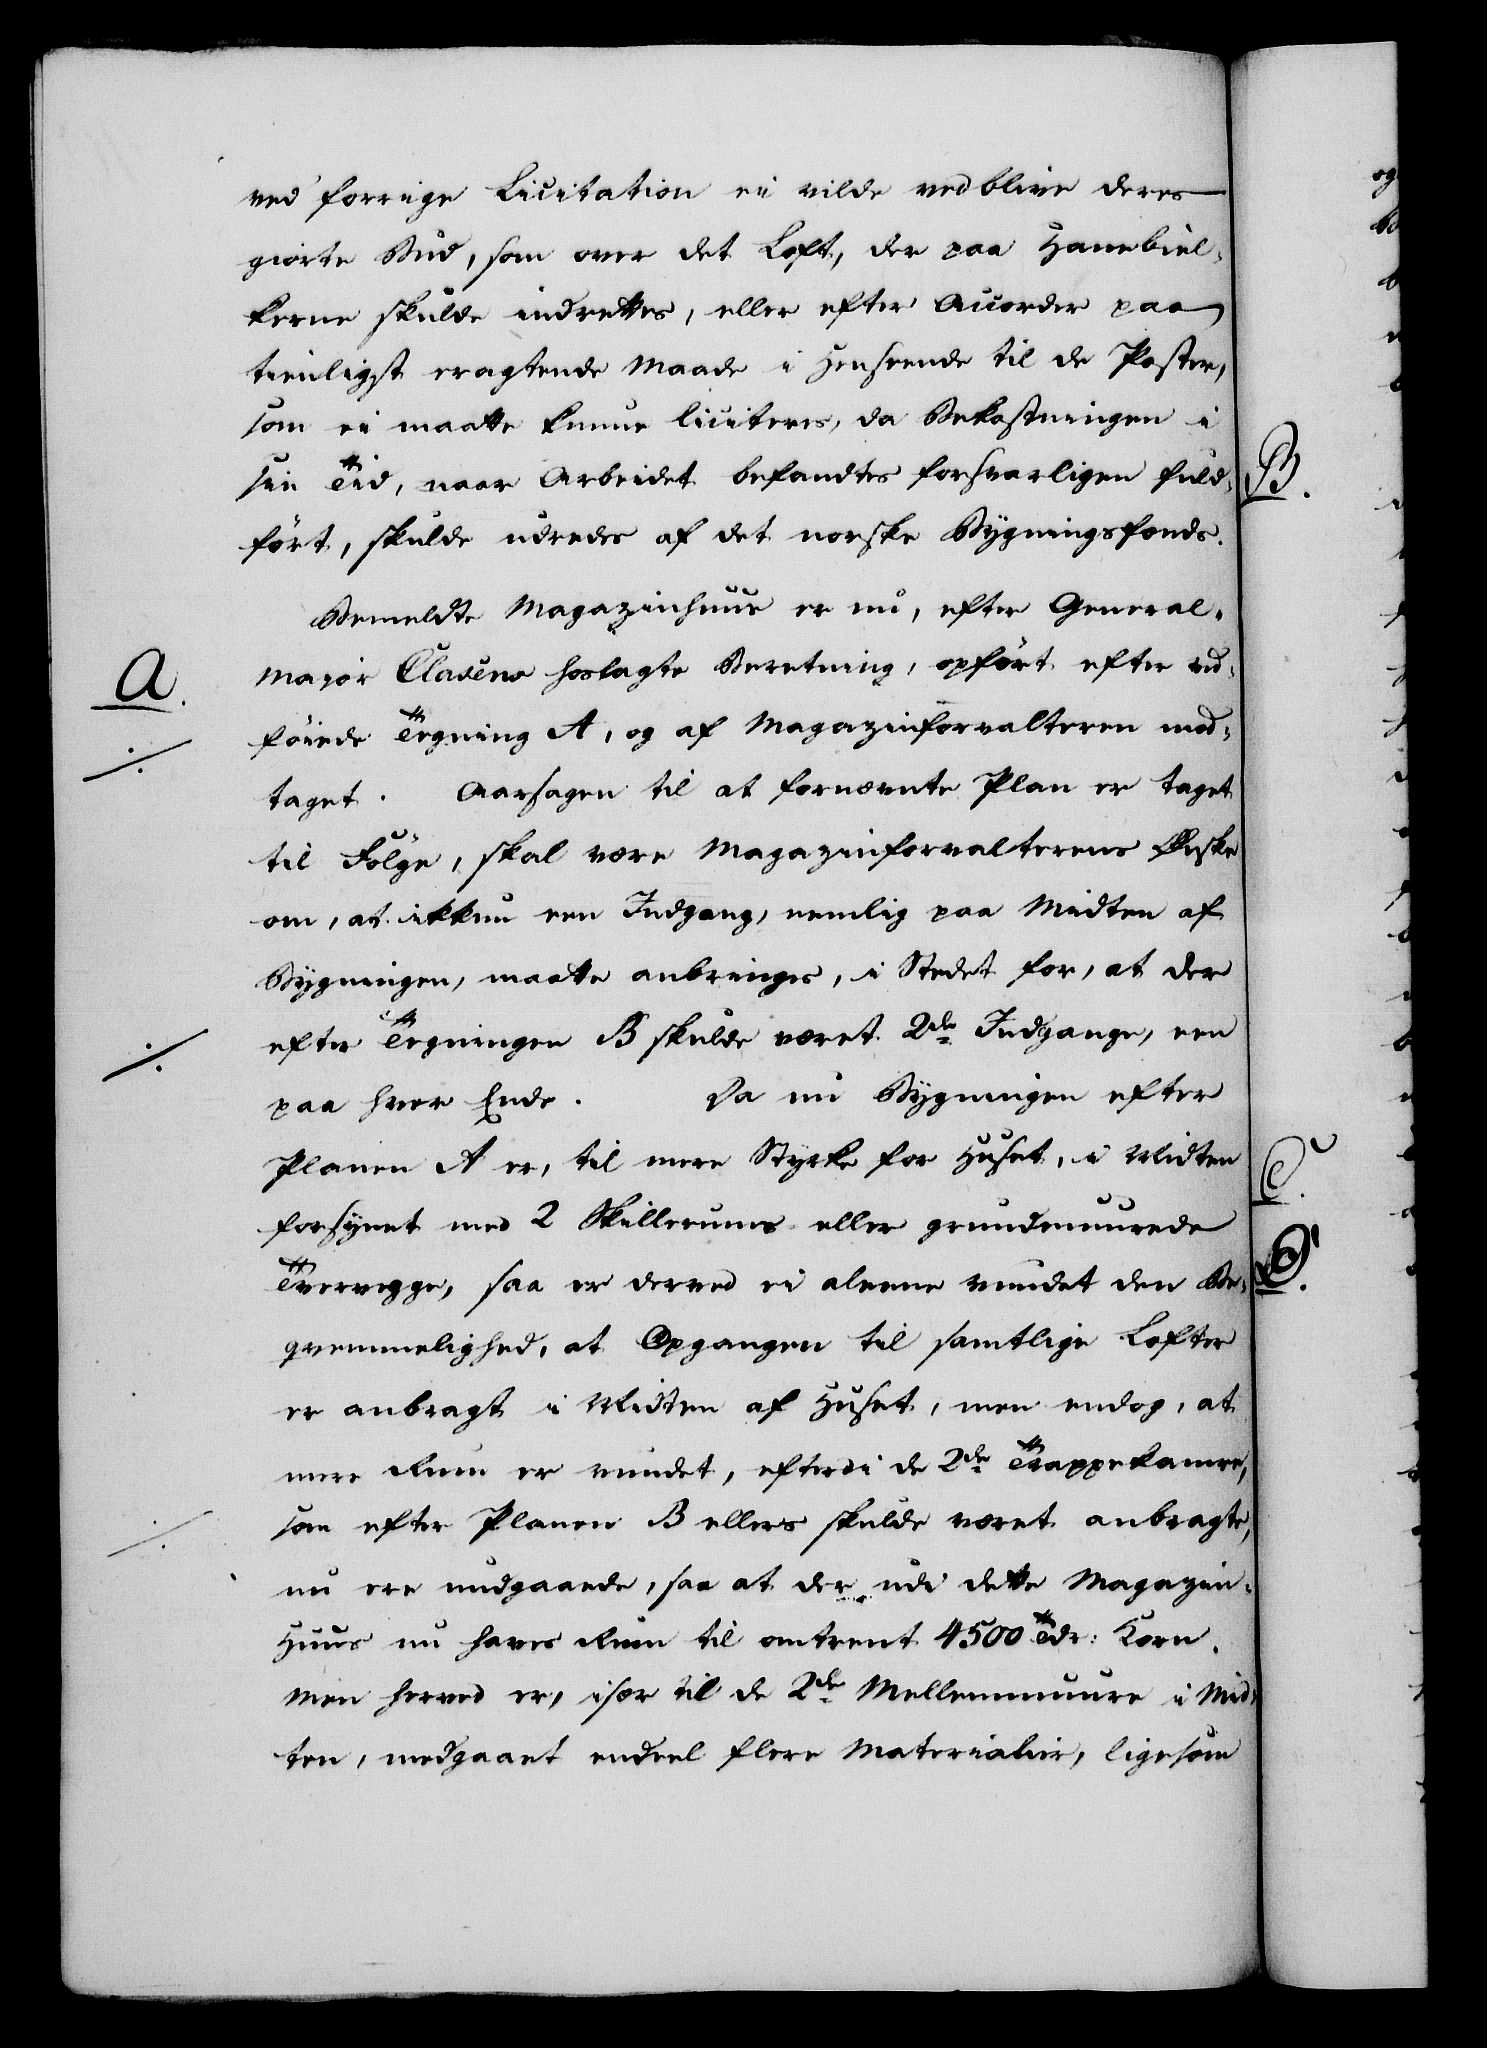 ved forrige Licitation ei vilde vedblive deres
giorte Bud, som over det Loft, der paa Hanebiel-
kerne skulde indrettes, eller efter Accorder paa
tienligst eragtende Maade i Henseende til de Poster,
som ei maatte kunne liciteres, da Bekostningen i
sin Tid, naar Arbeidet befandtes forsvarligen fuld-
ført, skulde udredes af det norske Bygningsfonds.
Bemeldte Magazinhuus er nu, efter General-
A.
major Clasens hoslagte Beretning, opført efter ved-
føiede Tegning A, og af Magazinforvalteren mod-
taget. Aarsagen til at fornævnte Plan er taget
til Følge, skal være Magazinforvalterens Ønske
om, at ikkun een Indgang, nemlig paa Midten af
Bygningen, maatte anbringes, i Stedet for, at der
efter Tegningen B skulde været 2de Indgange, een
paa hver Ende. Da nu Bygningen efter
Planen A er, til mere Styrke for Huset, i Midten
forsynet med 2 Skillerums eller grundmuurede
Tvervegge, saa er derved ei aleene vundet den Be-
qvemmelighed, at Opgangen til samtlige Lofter
er anbragt i Midten af Huset, men endog, at
mere Rum er vundet, efterdi de 2de Trappekamre,
som efter Planen B ellers skulde været anbragte,
nu ere undgaaede, saa at der udi dette Magazin-
Huus nu haves Rum til omtrent 4500 Tdr: Korn.
Men herved er, især til de 2de Mellemmuure i Mid-
ten, medgaaet endeel flere Materialier, ligesom
B.
C.
D.
og